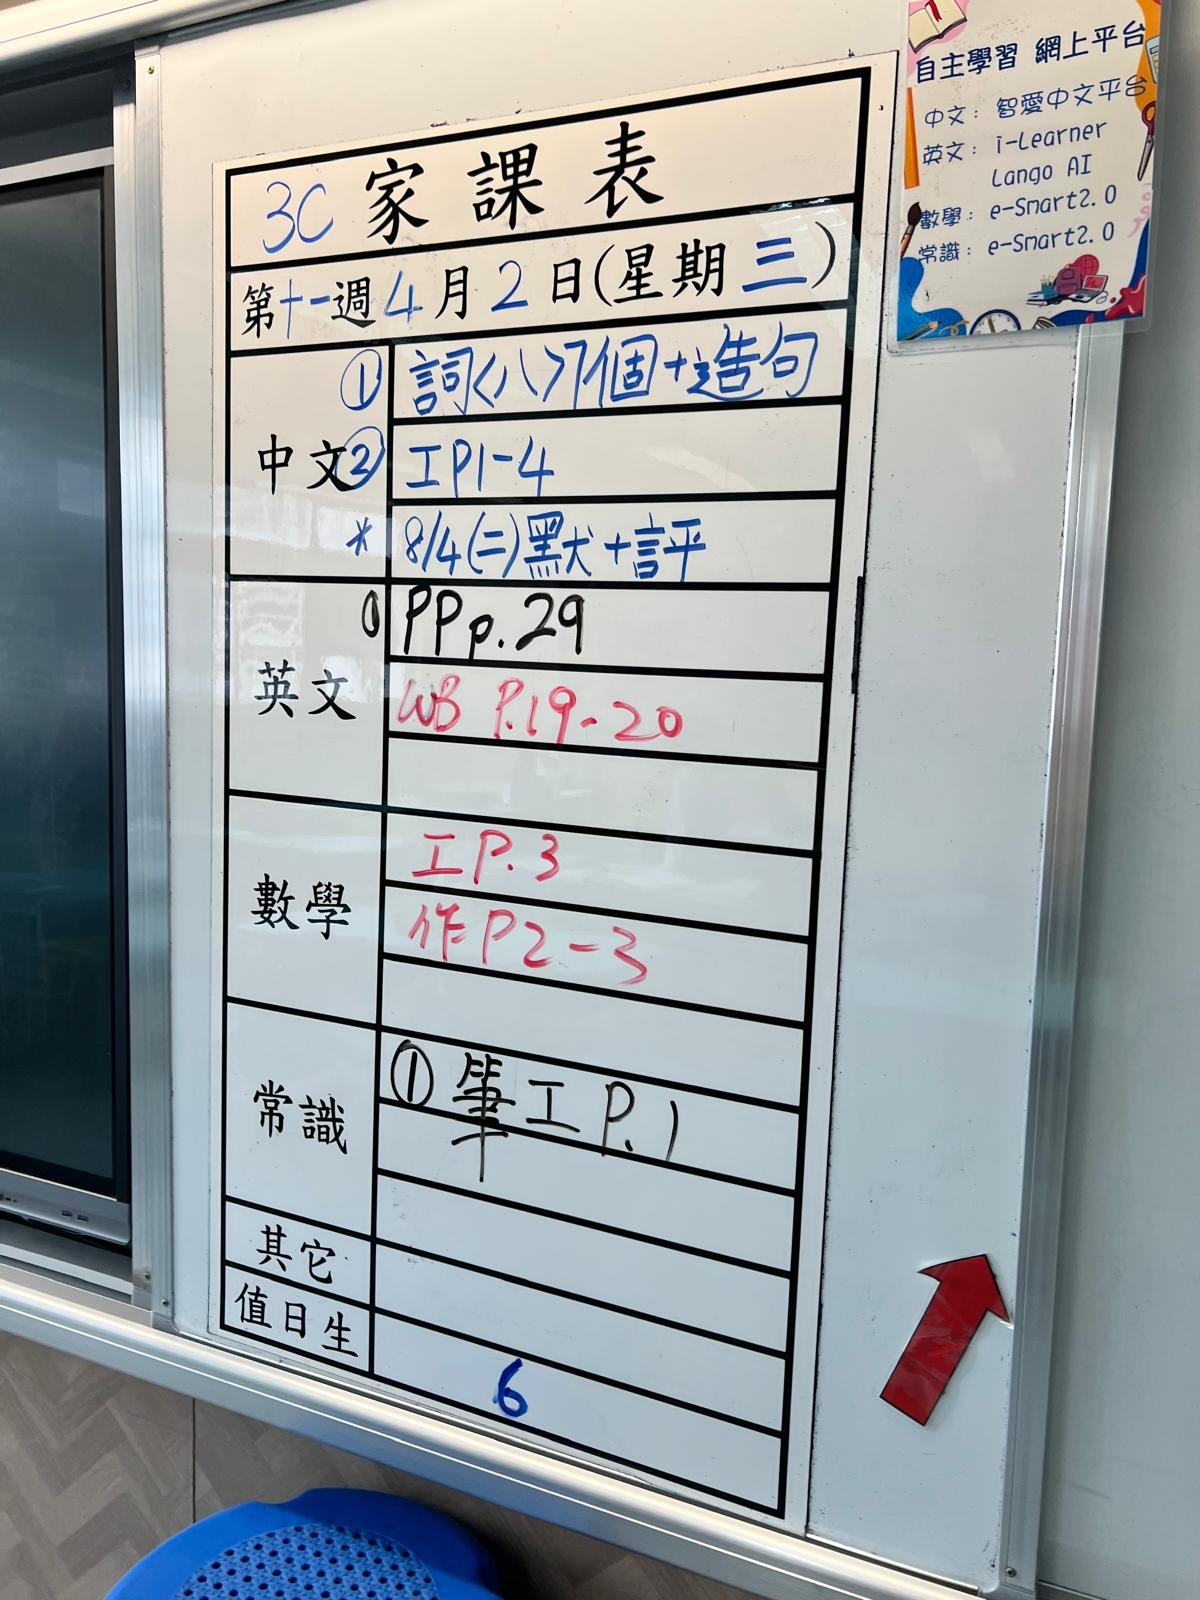 3C 家課表
第十一週 4月2日(星期三)
中文
① 詞<八>7個+造句
② 工P1-4
* 8/4(二)默+評
英文
PP p.29
WB P.19-20
數學
工 P.3
作 P2-3
常識
① 筆工 P.1
其它
值日生
6
自主學習 網上平台
中文: 智愛中文平台
英文: i-Learner
Lango AI
數學: e-Smart2.0
常識: e-Smart2.0